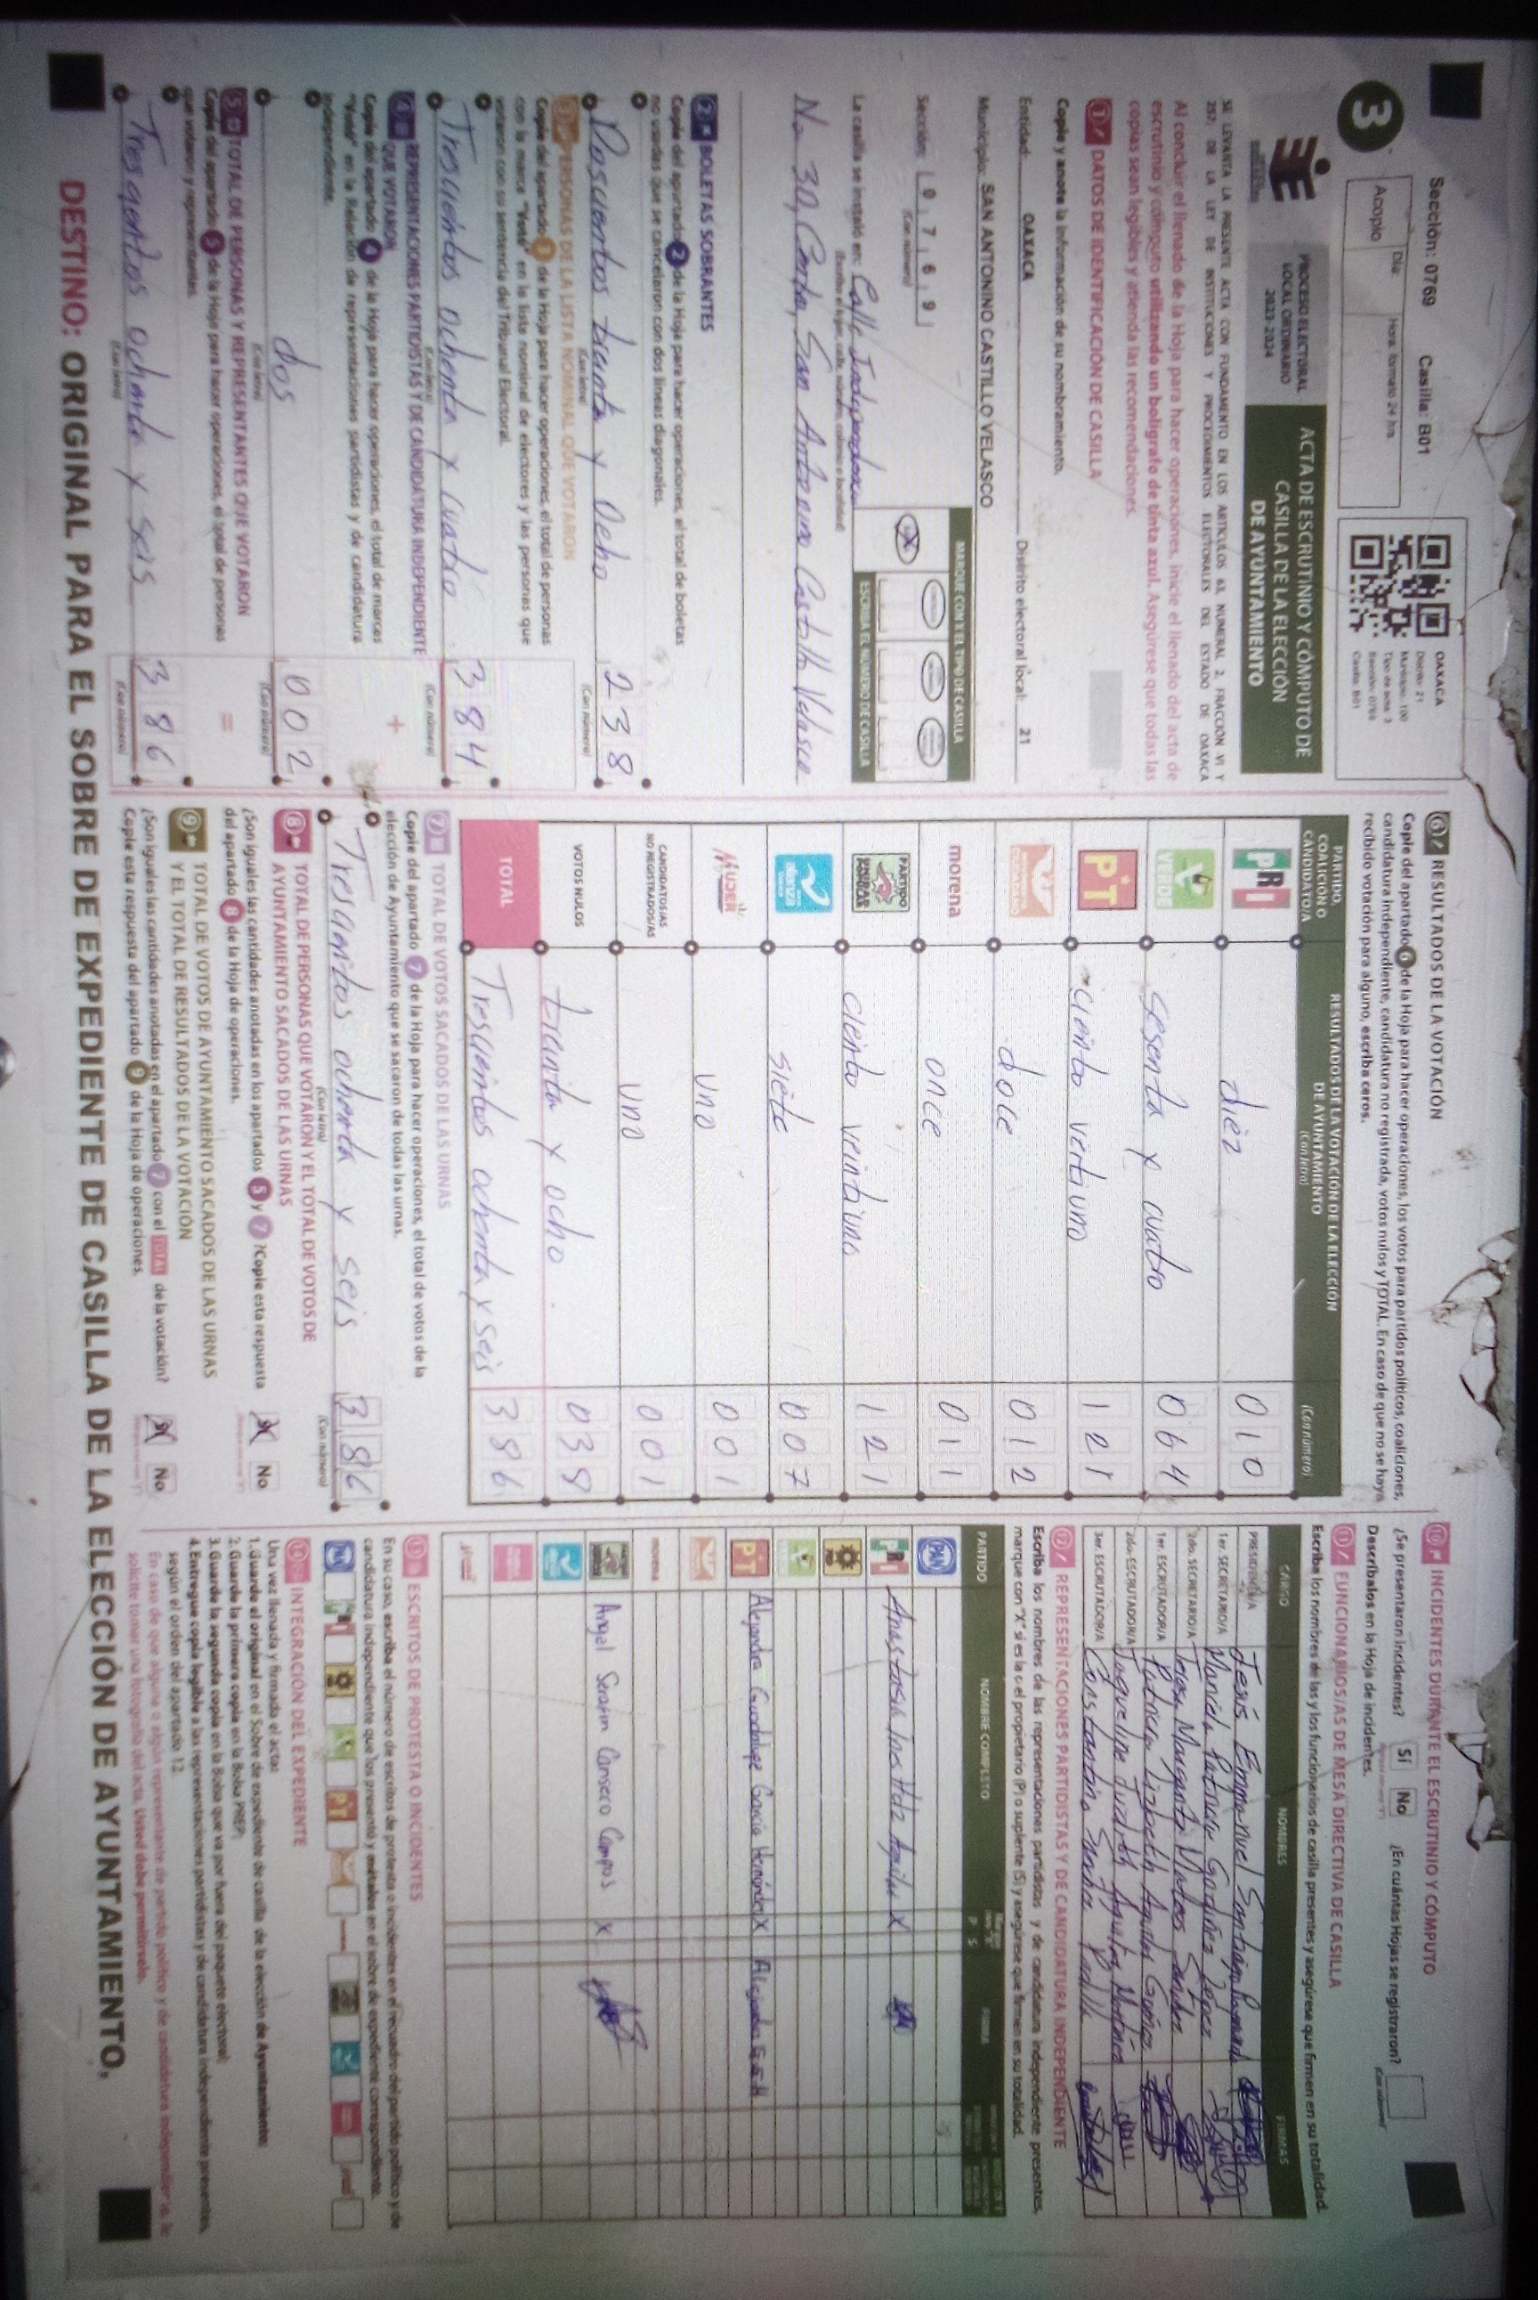 Sección: 0769 Casilla: B01
3
Acopio
Día:
Hora: formato 24 hrs
OAXACA
Distrito: 21
Municipio: 100
Tipo de acta: 3
Sección: 0769
Casilla: B01
PROCESO ELECTORAL
LOCAL ORDINARIO
2023-2024
ACTA DE ESCRUTINIO Y CÓMPUTO DE
CASILLA DE LA ELECCIÓN
DE AYUNTAMIENTO
SE LEVANTA LA PRESENTE ACTA CON FUNDAMENTO EN LOS ARTÍCULOS 63, NUMERAL 2, FRACCIÓN VI Y
257; DE LA LEY DE INSTITUCIONES Y PROCEDIMIENTOS ELECTORALES DEL ESTADO DE OAXACA
Al concluir el llenado de la Hoja para hacer operaciones, inicie el llenado del acta de
escrutinio y cómputo utilizando un bolígrafo de tinta azul. Asegúrese que todas las
copias sean legibles y atienda las recomendaciones.
1 DATOS DE IDENTIFICACIÓN DE CASILLA
Copie y anote la información de su nombramiento.
Entidad: OAXACA Distrito electoral local: 21
Municipio: SAN ANTONINO CASTILLO VELASCO
Sección: 0 7 6 9
(Con número)
MARQUE CON X EL TIPO DE CASILLA
X
ESCRIBA EL NÚMERO DE CASILLA
La casilla se instaló en: Calle Independencia
No 30, Centro, San Antonino Castillo Velasco
2 BOLETAS SOBRANTES
Copie del apartado 2 de la Hoja para hacer operaciones, el total de boletas
no usadas que se cancelaron con dos líneas diagonales.
Doscientos treinta y Ocho 2 3 8
(Con letra) (Con número)
3 PERSONAS DE LA LISTA NOMINAL QUE VOTARON
Copie del apartado 3 de la Hoja para hacer operaciones, el total de personas
con la marca "Votó" en la lista nominal de electores y las personas que
votaron con su sentencia del Tribunal Electoral.
Trescientos ochenta y cuatro 3 8 4
(Con letra) (Con número)
4 REPRESENTACIONES PARTIDISTAS Y DE CANDIDATURA INDEPENDIENTE
QUE VOTARON
+
Copie del apartado 4 de la Hoja para hacer operaciones, el total de marcas
"Votó" en la Relación de representaciones partidistas y de candidatura
independiente.
dos 0 0 2
(Con letra) (Con número)
5 TOTAL DE PERSONAS Y REPRESENTANTES QUE VOTARON
=
Copie del apartado 5 de la Hoja para hacer operaciones, el total de personas
que votaron y representantes.
Trescientos ochenta y seis 3 8 6
(Con letra) (Con número)
6 RESULTADOS DE LA VOTACIÓN
Copie del apartado 6 de la Hoja para hacer operaciones, los votos para partidos políticos, coaliciones,
candidatura independiente, candidatura no registrada, votos nulos y TOTAL. En caso de que no se haya
recibido votación para alguno, escriba ceros.
PARTIDO, COALICIÓN O CANDIDATO/A
RESULTADOS DE LA VOTACIÓN DE LA ELECCIÓN DE AYUNTAMIENTO
(Con letra) (Con número)
PRI diez 0 1 0
VERDE sesenta y cuatro 0 6 4
PT ciento veitiuno 1 2 1
MOVIMIENTO CIUDADANO doce 0 1 2
morena once 0 1 1
PARTIDO UNIDAD POPULAR ciento veintiuno 1 2 1
nueva alianza siete 0 0 7
MUJER uno 0 0 1
CANDIDATOS/AS NO REGISTRADOS/AS uno 0 0 1
VOTOS NULOS treinta y ocho 0 3 8
TOTAL Trescientos ochenta y seis 3 8 6
7 TOTAL DE VOTOS SACADOS DE LAS URNAS
Copie del apartado 7 de la Hoja para hacer operaciones, el total de votos de la
elección de Ayuntamiento que se sacaron de todas las urnas.
Trescientos ochenta y seis 3 8 6
(Con letra) (Con número)
8 TOTAL DE PERSONAS QUE VOTARON Y EL TOTAL DE VOTOS DE
AYUNTAMIENTO SACADOS DE LAS URNAS
¿Son iguales las cantidades anotadas en los apartados 5 y 7? Copie esta respuesta
del apartado 8 de la Hoja de operaciones.
Sí No
9 TOTAL DE VOTOS DE AYUNTAMIENTO SACADOS DE LAS URNAS
Y EL TOTAL DE RESULTADOS DE LA VOTACIÓN
¿Son iguales las cantidades anotadas en el apartado 7 con el TOTAL de la votación?
Copie esta respuesta del apartado 9 de la Hoja de operaciones.
Sí No
10 INCIDENTES DURANTE EL ESCRUTINIO Y CÓMPUTO
¿Se presentaron incidentes? Sí No ¿En cuántas Hojas se registraron?
(Con número)
Descríbalos en la Hoja de incidentes.
11 FUNCIONARIOS/AS DE MESA DIRECTIVA DE CASILLA
Escriba los nombres de las y los funcionarios de casilla presentes y asegúrese que firmen en su totalidad.
CARGO NOMBRES FIRMAS
PRESIDENTE/A Jesús Emmanuel Santiago
1er. SECRETARIO/A Mariela Patricia Godínez López
2do. SECRETARIO/A Teresa Margarita Mateos Sánchez
1er. ESCRUTADOR/A Patricia Lizbeth Aguilar
2do. ESCRUTADOR/A Jaqueline Aguilar Martínez
3er. ESCRUTADOR/A Constantina Sánchez Padilla
12 REPRESENTACIONES PARTIDISTAS Y DE CANDIDATURA INDEPENDIENTE
Escriba los nombres de las representaciones partidistas y de candidatura independiente presentes,
marque con "X" si es la o el propietario (P) o suplente (S) y asegúrese que firmen en su totalidad.
PARTIDO NOMBRE COMPLETO P S FIRMA
PAN
PRI Anastasia Inés Hdz Aguilar X
PRD
VERDE
PT Alejandra Guadalupe García Hernández X Alejandra G.G.H
morena
PARTIDO UNIDAD POPULAR Angel Serafín Cansero Campos X
13 ESCRITOS DE PROTESTA O INCIDENTES
En su caso, escriba el número de escritos de protesta o incidentes en el recuadro del partido político y/o de
candidatura independiente que los presentó y métalos en el sobre de expediente correspondiente.
14 INTEGRACIÓN DEL EXPEDIENTE
Una vez llenada y firmada el acta:
1. Guarde el original en el Sobre de expediente de casilla de la elección de Ayuntamiento;
2. Guarde la primera copia en la Bolsa PREP;
3. Guarde la segunda copia en la Bolsa que va por fuera del paquete electoral;
4. Entregue copia legible a las representaciones partidistas y de candidatura independiente presentes,
según el orden del apartado 12.
En caso de que alguna o algún representante de partido político y de candidatura independiente le
solicite tomar una fotografía del acta, Usted debe permitírselo.
DESTINO: ORIGINAL PARA EL SOBRE DE EXPEDIENTE DE CASILLA DE LA ELECCIÓN DE AYUNTAMIENTO,